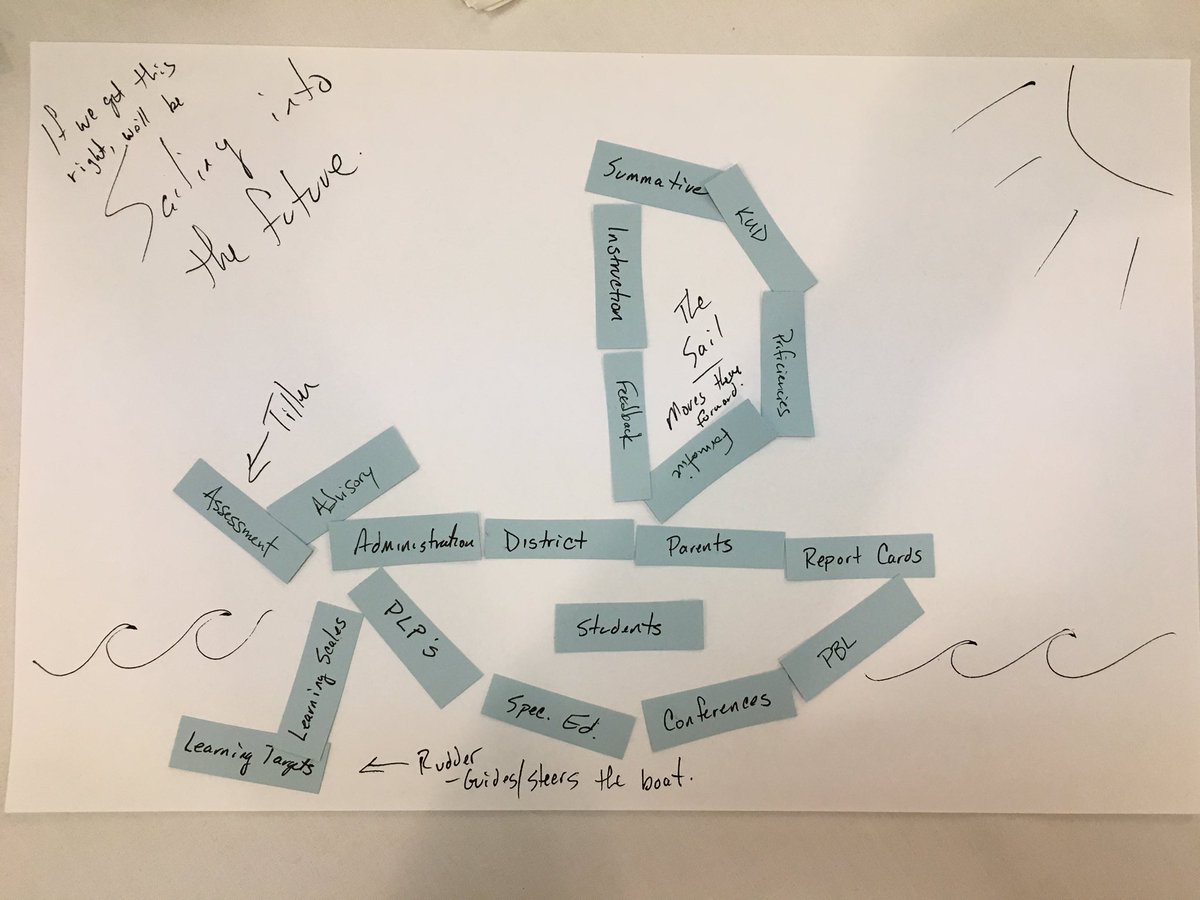 If we get this
right, we'll be
Sailing into
the future.
Summative
KUD
Instruction
The
Sail
Moves them
forward!
Proficiencies
Feedback
Formative
Tiller
Assessment
Advisory
Administration
District
Parents
Report Cards
PLP's
Students
PBL
Learning Scales
Spec. Ed.
Conferences
Learning Targets
Rudder
- Guides/steers the boat.